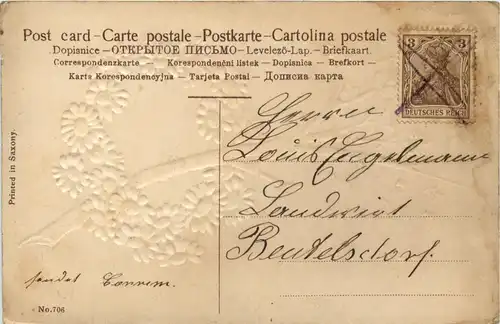 Post card - Carte postale - Postkarte - Cartolina postale
Dopisnice - ОТКРЫТОЕ ПИСЬМО - Levelező-Lap. - Briefkaart.
Correspondenzkarte - Korespondenční listek - Dopisnica - Brefkort -
Karta Korespondencyjna - Tarjeta Postal - Дописна карта
3 3
DEUTSCHES REICH
Herrn
Louis Engelmann
Landwirt
Beutelsdorf.
Printed in Saxony.
sendet
No. 706